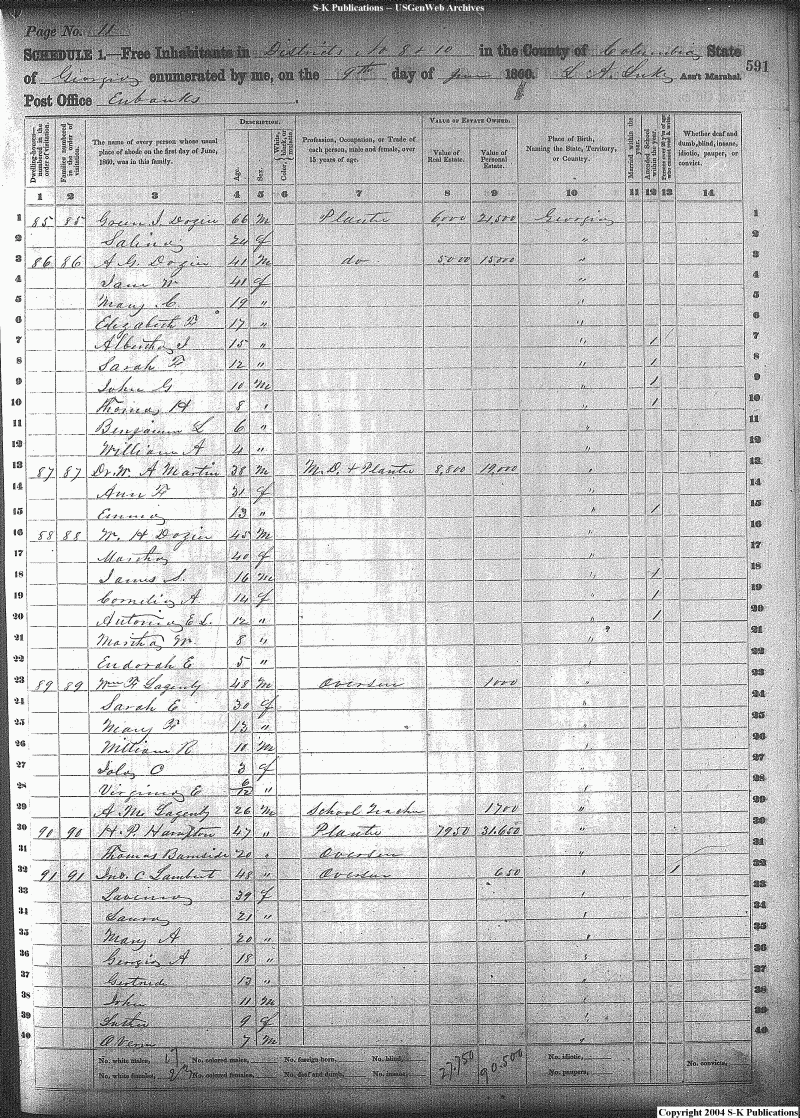 S-K Publications -- USGenWeb Archives
Page No. 11
SCHEDULE 1.—Free Inhabitants in Districts No 8 & 10 in the County of Columbia State 591
of Georgia enumerated by me, on the 9th day of June 1860. Ass't Marshal.
Post Office Eubanks
DESCRIPTION. VALUE OF ESTATE OWNED.
Dwelling-houses— numbered in the order of visitation. Families numbered in the order of visitation. The name of every person whose usual place of abode on the first day of June, 1860, was in this family. Age. Sex. Color, White, black, or mulatto. Profession, Occupation, or Trade of each person, male and female, over 15 years of age. Value of Real Estate. Value of Personal Estate. Place of Birth, Naming the State, Territory, or Country. Married within the year. Attended School within the year. Whether deaf and dumb, blind, insane, idiotic, pauper, or convict.
1 2 3 4 5 6 7 8 9 10 11 12 13 14
1 85 85 Green J. Dozier 66 M Planter 6,000 21,500 Georgia 1
2 Salina 24 f " 2
3 86 86 A. G. Dozier 41 M do 5000 15000 " 3
4 41 f " 4
5 Mary C 19 " " 5
6 Elizabeth F 17 " " 6
7 15 " " 1 7
8 Sarah F 12 " " 1 8
9 John G 10 M " 1 9
10 Thomas H 8 " " 1 10
11 Benjamin L 6 " " 11
12 William A 4 " " 12
13 87 87 Dr. W. A Martin 38 M M.D. & Planter 8,800 19,000 " 13
14 Ann F 31 f " 14
15 Emma 13 " " 1 15
16 88 88 W. H Dozier 45 M 16
17 Martha 40 f " 17
18 James S. 16 M " 1 18
19 Cornelia A 14 f " 1 19
20 12 " " 1 20
21 Martha W. 8 " " 21
22 Eudorah E 5 " " 22
23 89 89 Wm F 48 M Overseer 1000 23
24 Sarah E 30 f " 24
25 Mary F 13 " " 25
26 William R 10 M " 26
27 3 f " 27
28 Virginia E 6/12 " " 28
29 A. M. 26 M School Teacher 1700 " 29
30 90 90 H. P. Hampton 47 " Planter 7950 31,650 " 30
31 Thomas Burnside 20 " Overseer " 31
32 91 91 Jno. C Lambert 48 " Overseer 650 " 1 32
33 Lavinia 39 f " 33
34 Laura 21 " " 34
35 Mary A 20 " " 35
36 Georgia A 18 " " 36
37 Gertrude 13 " " 37
38 John 11 M " 38
39 9 f " 39
40 7 M " 40
No. white males, 17 No. colored males, No. foreign born, No. blind, 27,750 90,500 No. idiotic,
No. white females, 23 No. colored females, No. deaf and dumb, No. insane, No. paupers, No. convicts,
Copyright 2004 S-K Publications